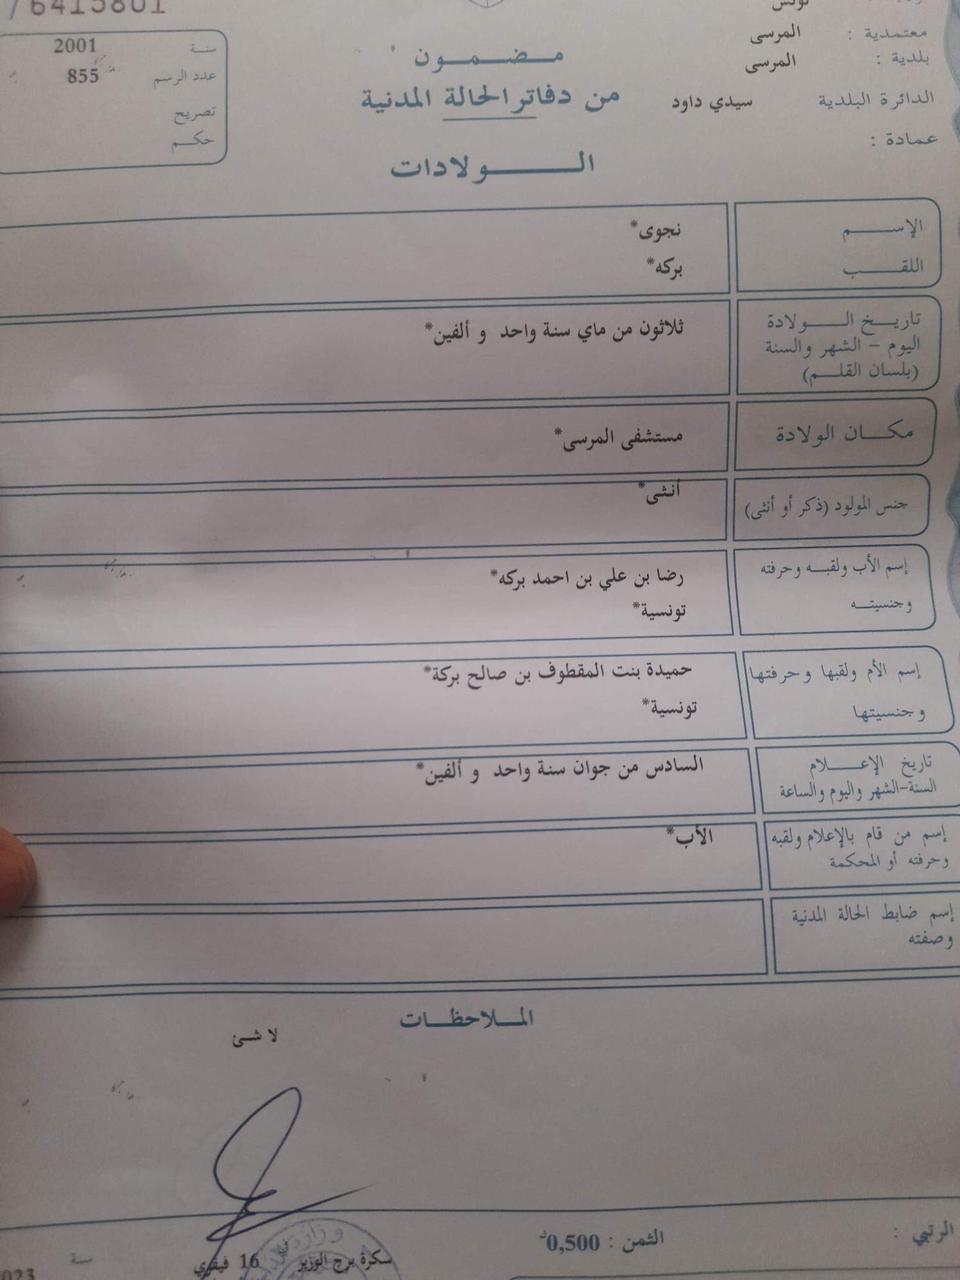 76415801
تونس
معتمدية : المرسى
بلدية : المرسى
الدائرة البلدية سيدي داود
عمادة :
مضمون
من دفاتر الحالة المدنية
الولادات
سنة 2001
عدد الرسم 855
تصريح
حكم
الإسم نجوى*
اللقب بركه*
تاريخ الولادة ثلاثون من ماي سنة واحد و ألفين*
اليوم - الشهر والسنة
(بلسان القلم)
مكان الولادة مستشفى المرسى*
جنس المولود (ذكر أو أنثى) أنثى*
إسم الأب ولقبه وحرفته رضا بن علي بن احمد بركه*
وجنسيته تونسية*
إسم الأم ولقبها وحرفتها حميدة بنت المقطوف بن صالح بركة*
وجنسيتها تونسية*
تاريخ الإعلام السادس من جوان سنة واحد و ألفين*
السنة-الشهر واليوم والساعة
إسم من قام بالإعلام ولقبه الأب*
وحرفته أو المحكمة
إسم ضابط الحالة المدنية
وصفته
الملاحظات
لا شئ
الرتبي : الثمن : 0,500د
سكرة برج الوزير في 16 فيفري سنة 2023